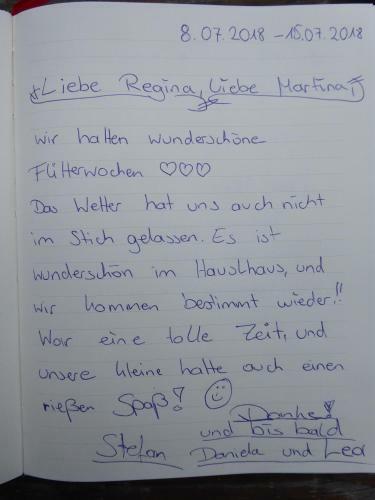 8.07.2018 - 15.07.2018
Liebe Regina, Liebe Martina!
wir hatten wunderschöne
Flitterwochen ♡♡♡
Das Wetter hat uns auch nicht
im Stich gelassen. Es ist
wunderschön im Hauslhaus, und
wir kommen bestimmt wieder!!
War eine tolle Zeit, und
unsere kleine hatte auch einen
rießen Spaß! ☺
Danke!
und bis bald
Stefan Daniela und Lea